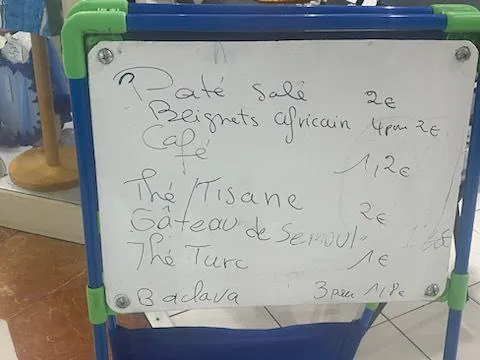 Paté salé 2€
Beignets africain 4 pour 2€
Café 1,2€
Thé/Tisane 2€
Gâteau de Semoul
Thé Turc 1€
Baclava 3 pour 1,8€